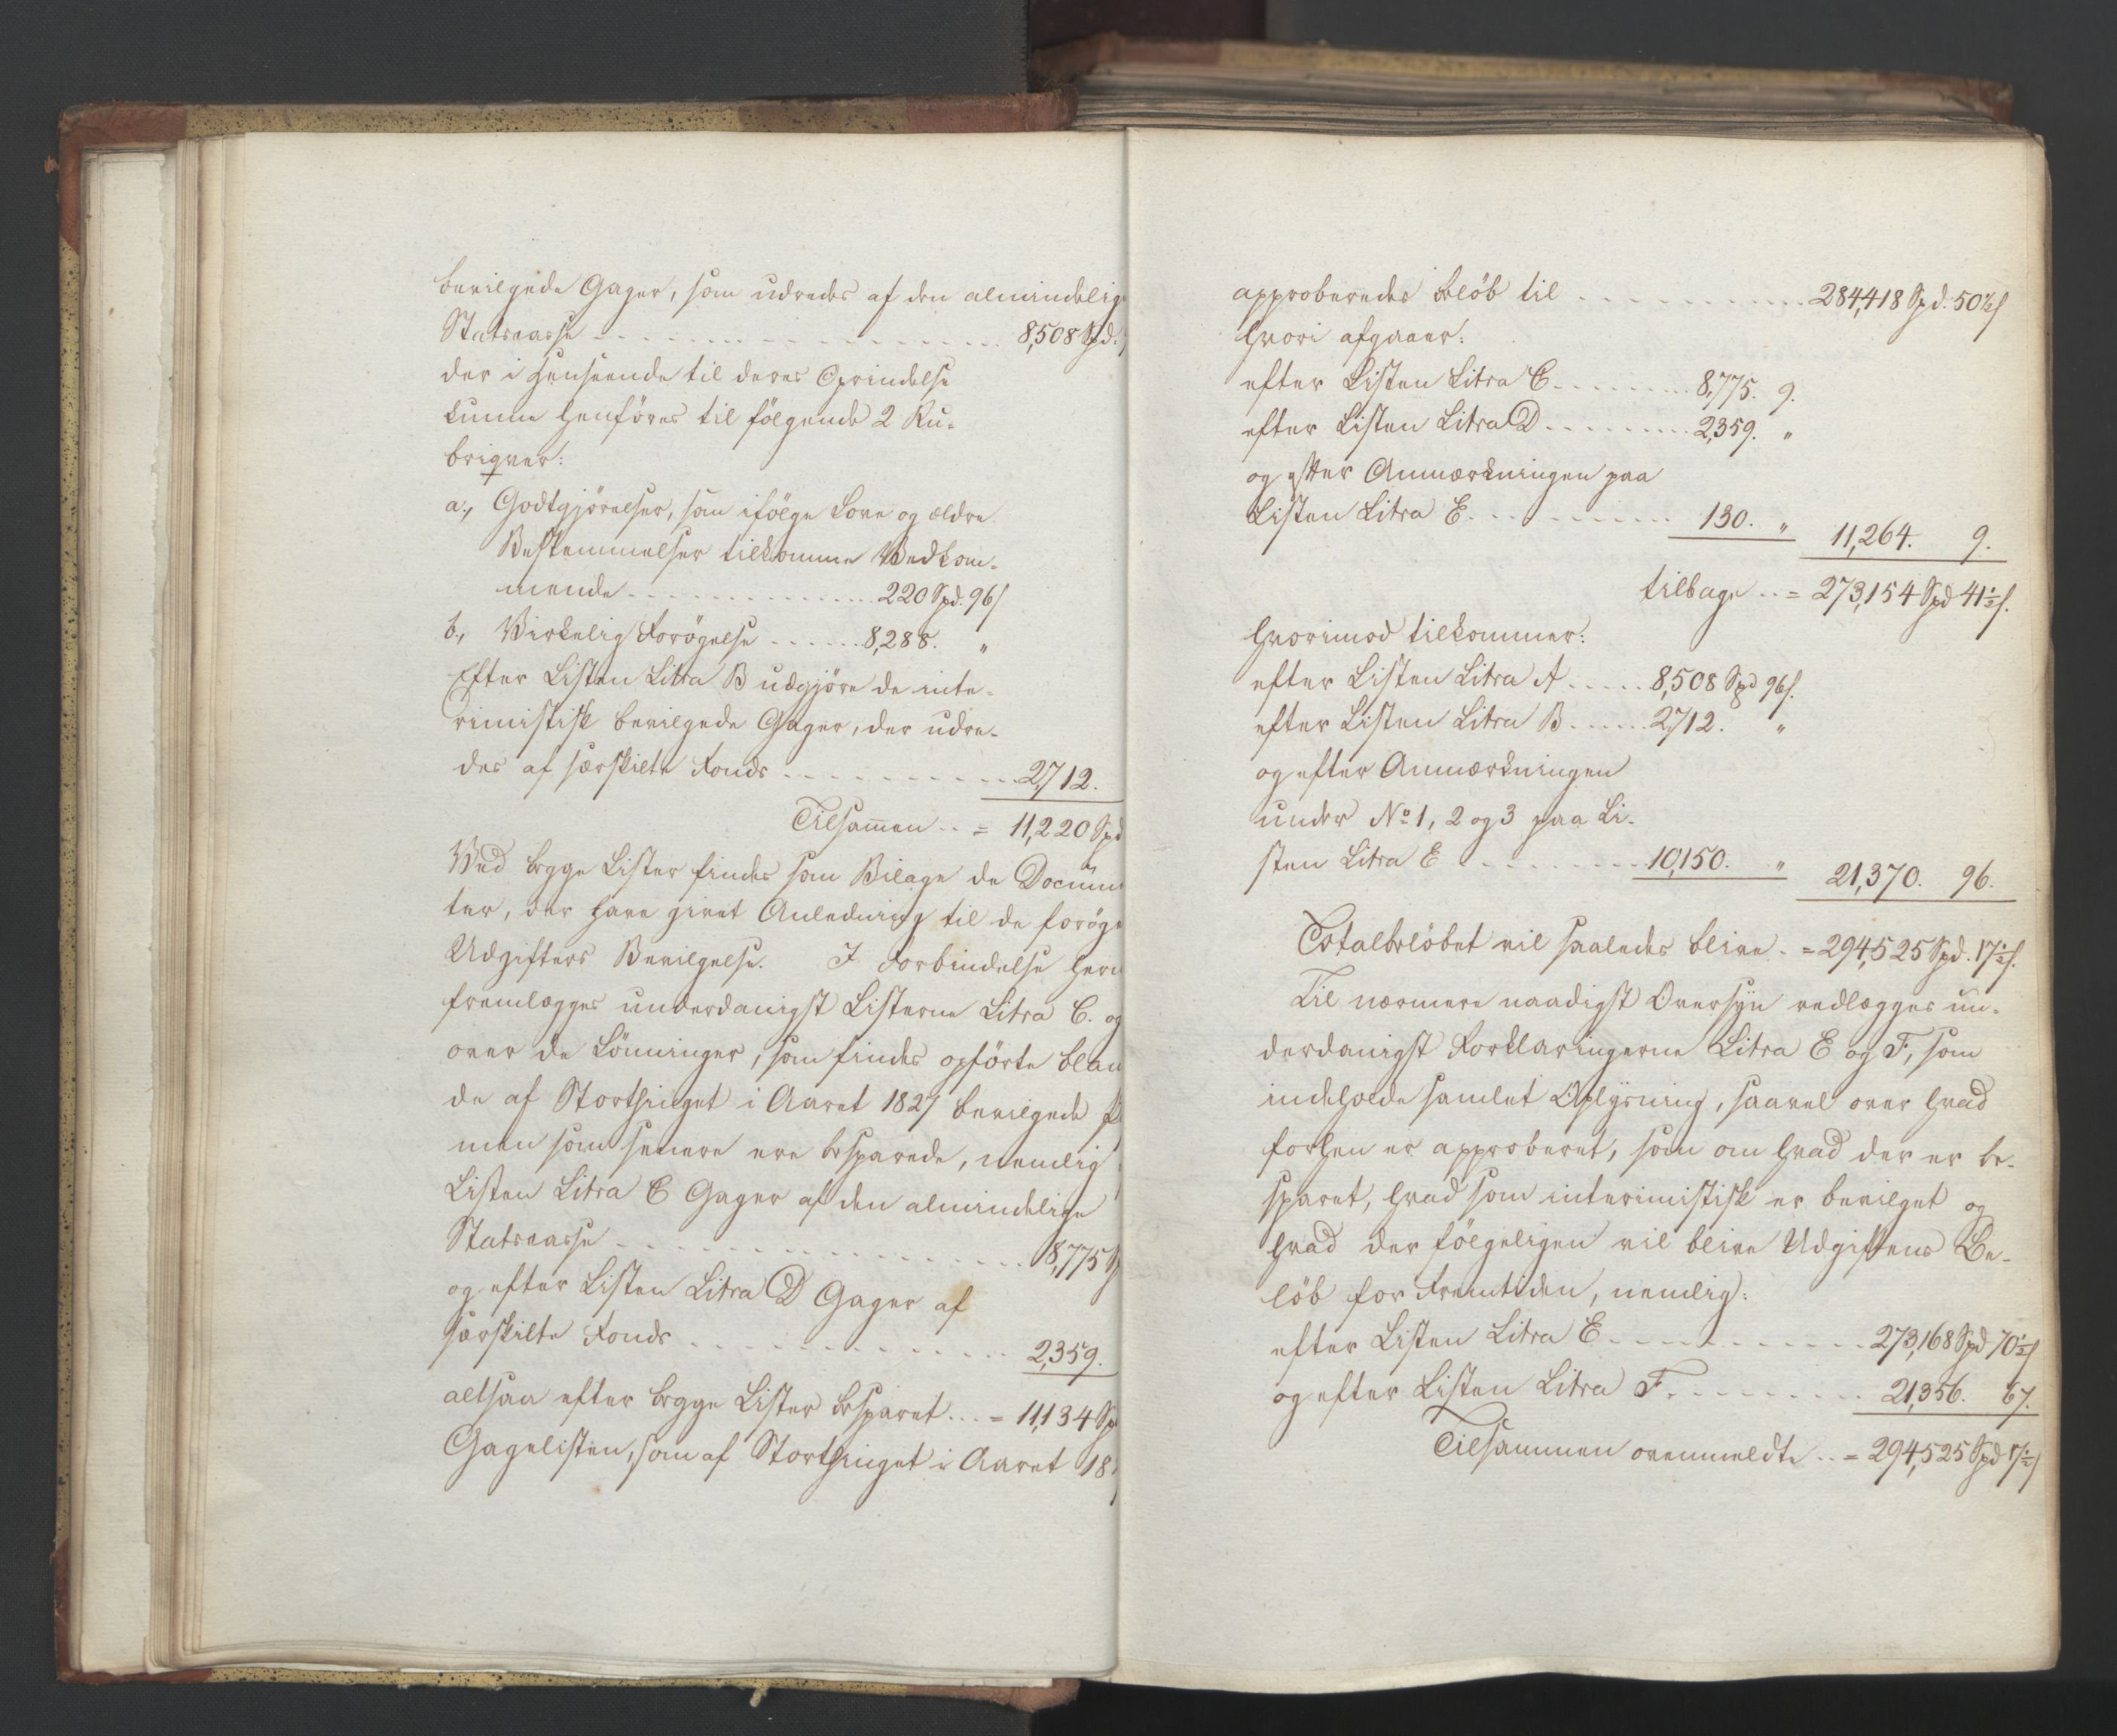 bevilgede Gager, som udredes af den almindelig
Statscasse - - - - - - - - - - 8,508 Spd.
der i Henseende til deres Oprindelse
kunne henföres til følgende 2 Ru-
briqver:
a., Godtgjørelser, som ifölge Love og ældre
Bestemmelser tilkomme Vedkom-
mende - - - - - - - 220 Spd. 96 s
b., Virkelig Forögelse - - - - 8,288. "
Efter Listen Litra B udgjøre de inte-
rimistisk bevilgede Gager, der udre-
des af særskilte Fonds - - - - - - 2,712.
Tilsamen . . = 11,220 Spd
Ved begge Lister findes som Bilage de Documen
ter, der have givet Anledning til de forøge
Udgifters Bevilgelse. I Forbindelse her
fremlægges underdanigst Listerne Litra C. og
over de Lönninger, som findes opförte blan
de af Storthinget i Aaret 1827 bevilgede
men som senere ere besparede, nemlig
Listen Litra C Gager af den almindelige
Statscasse - - - - - - - - - - 8,775 Sp
og efter Listen Litra D Gager af
særskilte Fonds - - - - - - - - 2,359.
altsaa efter begge Lister besparet . . . = 11,134 Sp
Gagelisten, som af Storthinget i Aaret 18
approberedes Belöb til - - - - - - - 284,418 Spd. 50½ s
hvori afgaaer:
efter Listen Litra C - - - - - 8,775. 9.
efter Listen Litra D - - - - - 2,359. "
og efter Anmærkningen paa
Listen Litra E - - - - - - - 130. " 11,264. 9.
tilbage . . = 273,154 Spd 41½ s.
hvorimod tilkommer:
efter Listen Litra A . . . . . 8,508 Spd 96 s.
efter Listen Litra B . . . . . 2,712. "
og efter Anmærkningen
under No 1, 2 og 3 paa Li-
sten Litra E - - - - - - - 10,150. " 21,370. 96.
Totalbelöbet vil saaledes blive . = 294,525 Spd. 17½ s.
Til nærmere naadigst Oversyn vedlægges un-
derdanigst Forklaringerne Litra E og F, som
indeholde samlet Oplysning, saavel over hvad
forhen er approberet, som om hvad der er be-
sparet, hvad som interimistisk er bevilget og
hvad der følgeligen vil blive Udgiftens Be-
löb for Fremtiden, nemlig:
efter Listen Litra E - - - - - - - 273,168 Spd 70½ s
og efter Listen Litra F. - - - - - - 21,356. 67.
Tilsammen ovenmeldte . . = 294,525 Spd 17½ s